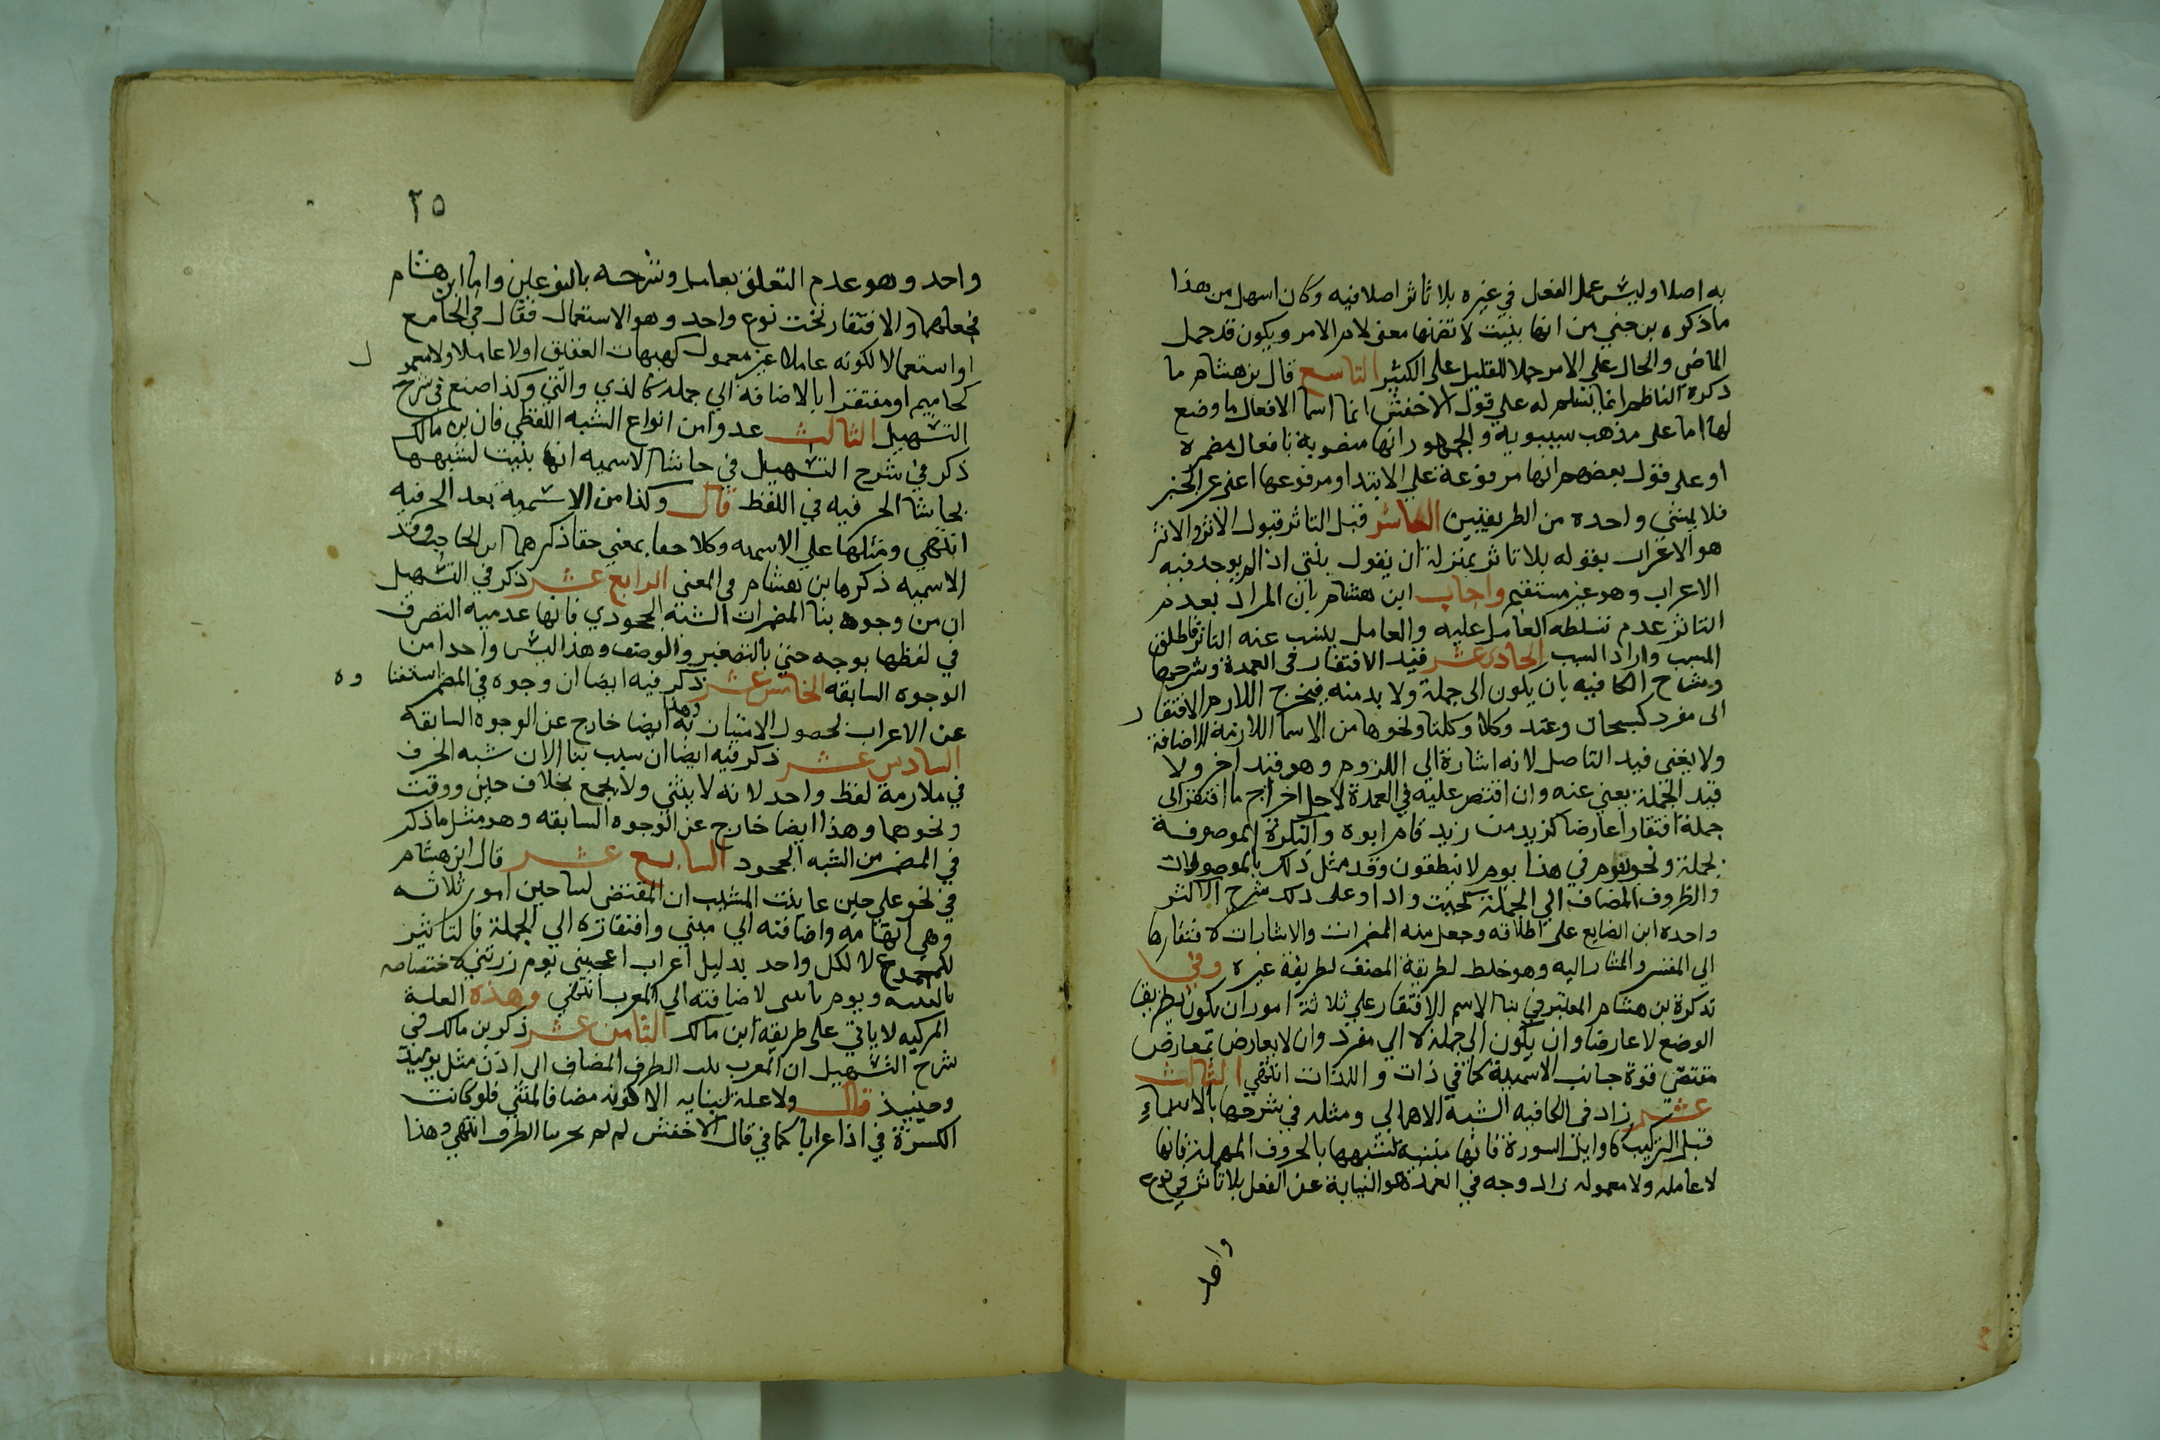 به اصلا وليس عمل الفعل في غيره بلا تاثر اصلا فيه وكان اسهل من هذا
ما ذكره بن جني من انها بنيت لاتضمنها معنى لام الامر ويكون قد حمل
الماضي والحال على الامر حملا للقليل على الكثير التاسع قال بن هشام ما
ذكره الناظم انما يتسلم له على قول الاخفش انما اسما الافعال ما وضع
لها اما على مذهب سيبويه والجمهور انها منصوبة بافعال مضمرة
او على قول بعضهم انها مرفوعة على الابتدا ومرفوعها اغنى عن الخبر
فلا يمشي واحده من الطريقتين العاشر قبل التاثر قبول الاثر والاثر
هو الاعراب بقوله بلا تاثر بمنزلة ان يقول يبنى اذا لم يوجد فيه
الاعراب وهو غير مستقيم واجاب ابن هشام بان المراد بعدم
التاثر عدم تسلطه العامل عليه والعامل يسبب عنه التاثر فاطلق
المسبب واراد السبب الحادي عشر قيد الافتقار في العمدة وشرحها
وشرح الكافيه بان يكون الى جملة ولا بد منه فيخرج اللازم الافتقار
الى مفرد كسبحان وعند وكلا وكلتا ونحوها من الاسما اللازمة للاضافة
ولا يغني قيد التاصل لانه اشارة الى اللزوم وهو قيد اخر ولا
قيد الجملة يغني عنه وان اقتصر عليه في العمدة لاجل اخراج ما افتقر الى
جملة افتقارا عارضا كزيد من زيد قام ابوه والنكرة الموصوفة
بجملة ونحو يوم في هذا يوم لا ينطقون وقد مثل ذلك بالموصولات
والظروف المضاف الى الجملة كحيث واذا وعلى ذلك شرح الاكثر
واحده ابن الضايع على اطلاقه وجعل منه المضمرات والاشارات لافتقارها
الى المفسر والمشار اليه وهو خلط لطريقة المصنف لطريقة غيره وفي
تذكرة بن هشام المعتبر في بنا الاسم الافتقار على ثلاثة امور ان يكون بطريق
الوضع لا عارضا وان يكون الى جملة لا الى مفرد وان لا يعارض بمعارض
مقتض قوة جانب الاسمية كما في ذات واللذات انتهى الثالث
عشر زاد في الكافيه الشبه الاهمالي ومثله في شرحها بالاسماء
قبل التركيب كاوايل السورة فانها مبنيه لشبهها بالحروف المهملة فانها
لا عامله ولا معموله زاد وجه في العمدة هو النيابة عن الفعل بلا تاثر في نوع
واحد
٢٥
واحد وهو عدم التعلق بعامل وشرحه بالنوعين واما ابن هشام
فجعلهما والافتقار تحت نوع واحد وهو الاستعمال فقال في الجامع
او استعمالا لكونه عاملا غير معمول كهيهات العقيق اولا عاملا ولا معمو
ل
كحاميم او مفتقرا بالاضافة الى جملة كالذي والتي وكذا صنع في شرح
التسهيل الثالث عدوا من انواع الشبه اللفظي فان بن مالك
ذكر في شرح التسهيل في حاشا الاسميه انها بنيت لشبهها
بحاشا الحرفيه في اللفظ قال وكذا من الاسمية بعد الحرفيه
انتهى ومثلها على الاسمية وكلا حقا بمعنى حقا ذكرهما ابن الحاجب وقد
الاسميه ذكرها بن هشام في المعنى الرابع عشر ذكر في التسهيل
ان من وجوه بنا المضمرات الشبه الجمودي فانها عدميه التصرف
في لفظها بوجه حتى بالتصغير والوصف وهذا ليس واحدا من
الوجوه السابقه الخامس عشر ذكر فيه ايضا ان وجوه في المضمر استغنا
وه
عن الاعراب لحصول الامتياز به وهذا ايضا خارج عن الوجوه السابقة
السادس عشر ذكر فيه ايضا ان سبب بنا الان شبه الحرف
في ملازمة لفظ واحد لانه لا يثنى ولا يجمع بخلاف حين ووقت
ونحوهما وهذا ايضا خارج عن الوجوه السابقه وهو مثل ما ذكر
في المضمر من الشبه الجمود السابع عشر قال ابن هشام
في نحو على حين عاتبت المشيب ان المقتضى لبنا حين امور ثلاثه
وهي ابهامه واضافته الى مبني وافتقاره الى الجملة فالتاثير
للمجموع لا لكل واحد بدليل اعراب اعجبني يوم زرتني لاختصاصه
لاضافته الى المعرب انتهى وهذه العلة
المركبه لا ياتي على طريقة ابن مالك الثامن عشر ذكر بن مالك في
شرح التسهيل ان المعرب الظرف المضاف الى اذ من مثل يوميذ
وحينيذ قال ولا علة لبنايه الا كونه مضافا لمبني فلو كانت
الكسرة في اذ اعرابا كما في قال الاخفش لم الظرف انتهى وهذا